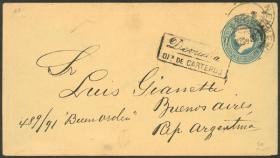 Devuelta
OFA. DE CARTEROS
Sr
Luis Gianetti
489/91 "Buen Orden" Buenos aires
Rep Argentina